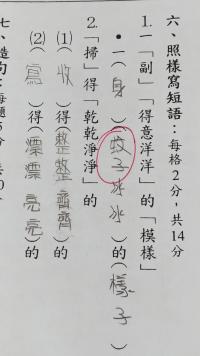 六、照樣寫短語：每格2分，共14分
1.一「副」「得意洋洋」的「模樣」
•一（身）（蚊子冰冰）的（樣子）
2.「掃」得「乾乾淨淨」的
(1)（收）得（整整齊齊）的
(2)（寫）得（漂漂亮亮）的
七、造句：每題5分